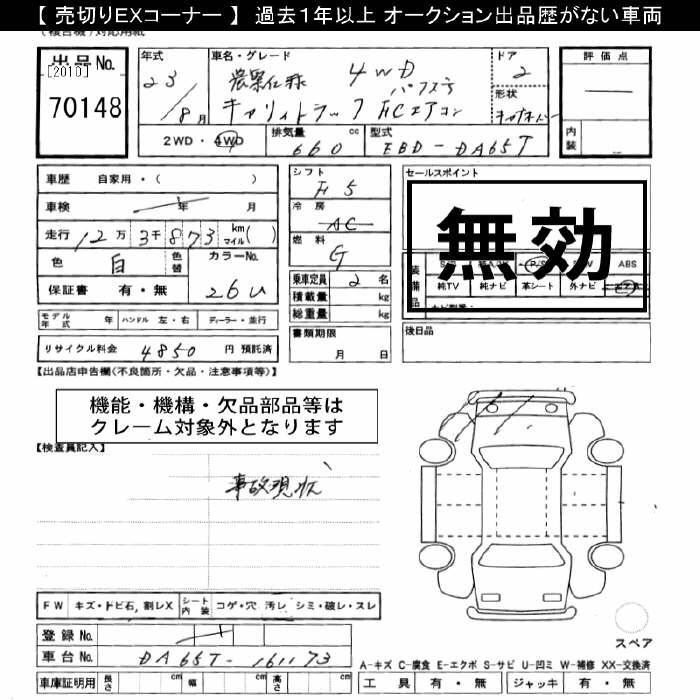 【 売切りEXコーナー 】 過去1年以上 オークション出品歴がない車両
出品No.
[2010]
70148
年式
23
/8月
車名・グレード
農繁仕様 4WD
キャリィトラック FCエアコン
パワステ
ドア
2
形状
評価点
内装
2WD・4WD
排気量
660 cc
型式
EBD-DA65T
車歴 自家用・( )
車検 年 月
走行 12万3千873 km マイル( )
色 白 色替
カラーNo.
26U
保証書 有・無
シフト
F5
冷房
AC
燃料
G
乗車定員 2 名
積載量 kg
総重量 kg
書類期限
月 日
セールスポイント
無効
ABS
純TV 純ナビ 革シート 外ナビ
後日品
モデル年式 年 ハンドル 左・右 ディーラー・並行
リサイクル料金 4850 円 預託済
【出品店申告欄(不良箇所・欠品・注意事項等)】
機能・機構・欠品部品等は
クレーム対象外となります
【検査員記入】
事故現状
FW キズ・トビ石, 割レX シート内装 コゲ・穴 汚レ シミ・破レ・スレ
登録No.
車台No. DA65T-161173
車庫証明用 長さ cm 幅 cm 高さ cm
スペア
A-キズ C-腐食 E-エクボ S-サビ U-凹ミ W-補修 XX-交換済
工具 有・無 ジャッキ 有・無